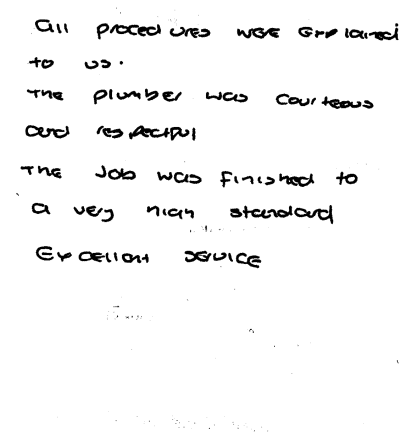 all procedures were explained
to us.
The plumber was courteous
and respectful
The Job was finished to
a very high standard
Excellent SERVICE